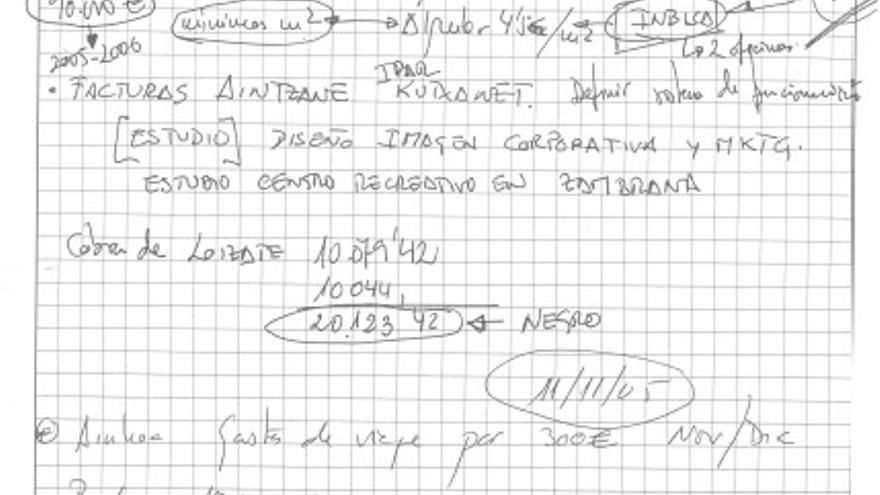 90.000 €
mínimos m2 4'5€/m2 INBLSA
2005-2006 Las 2 oficinas
• FACTURAS AINTZANE IPAR KUTXANET. Definir sistema de funcionamiento
[ESTUDIO] DISEÑO IMAGEN CORPORATIVA y MKTG.
ESTUDIO CENTRO RECREATIVO EN ZAMBRANA
Cobra de LOIZATE 10.079'42
10044,
20.123'42 ← NEGRO
11/11/05
Ainhoa Gastos de viaje por 300€ Nov/Dic